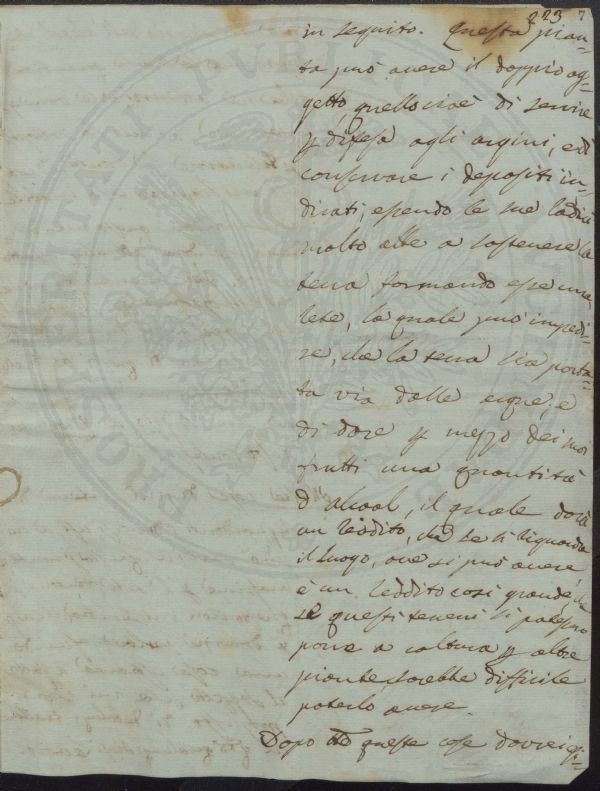 223 7
in seguito. Questa pian-
ta può avere il doppio og-
getto, quello cioè di servire
p difesa agli argini, e di
conservare i depositi in-
dicati, essendo le sue radici
molto atte a sostenere la
terra formando esse una
rete, la quale può impedi-
re, che la terra sia porta-
ta via dalle acque; e
di dare p mezzo dei suoi
frutti una quantità
d'alcool, il quale darà
un reddito, che se si riguarda
il luogo, ove si può avere
è un reddito così grande, che
se questi terreni si potessero
porre a coltura p altre
piante, sarebbe difficile
poterlo avere.
Dopo tto queste cose dovrei qi-
PROSPERITATI PUBLICAE